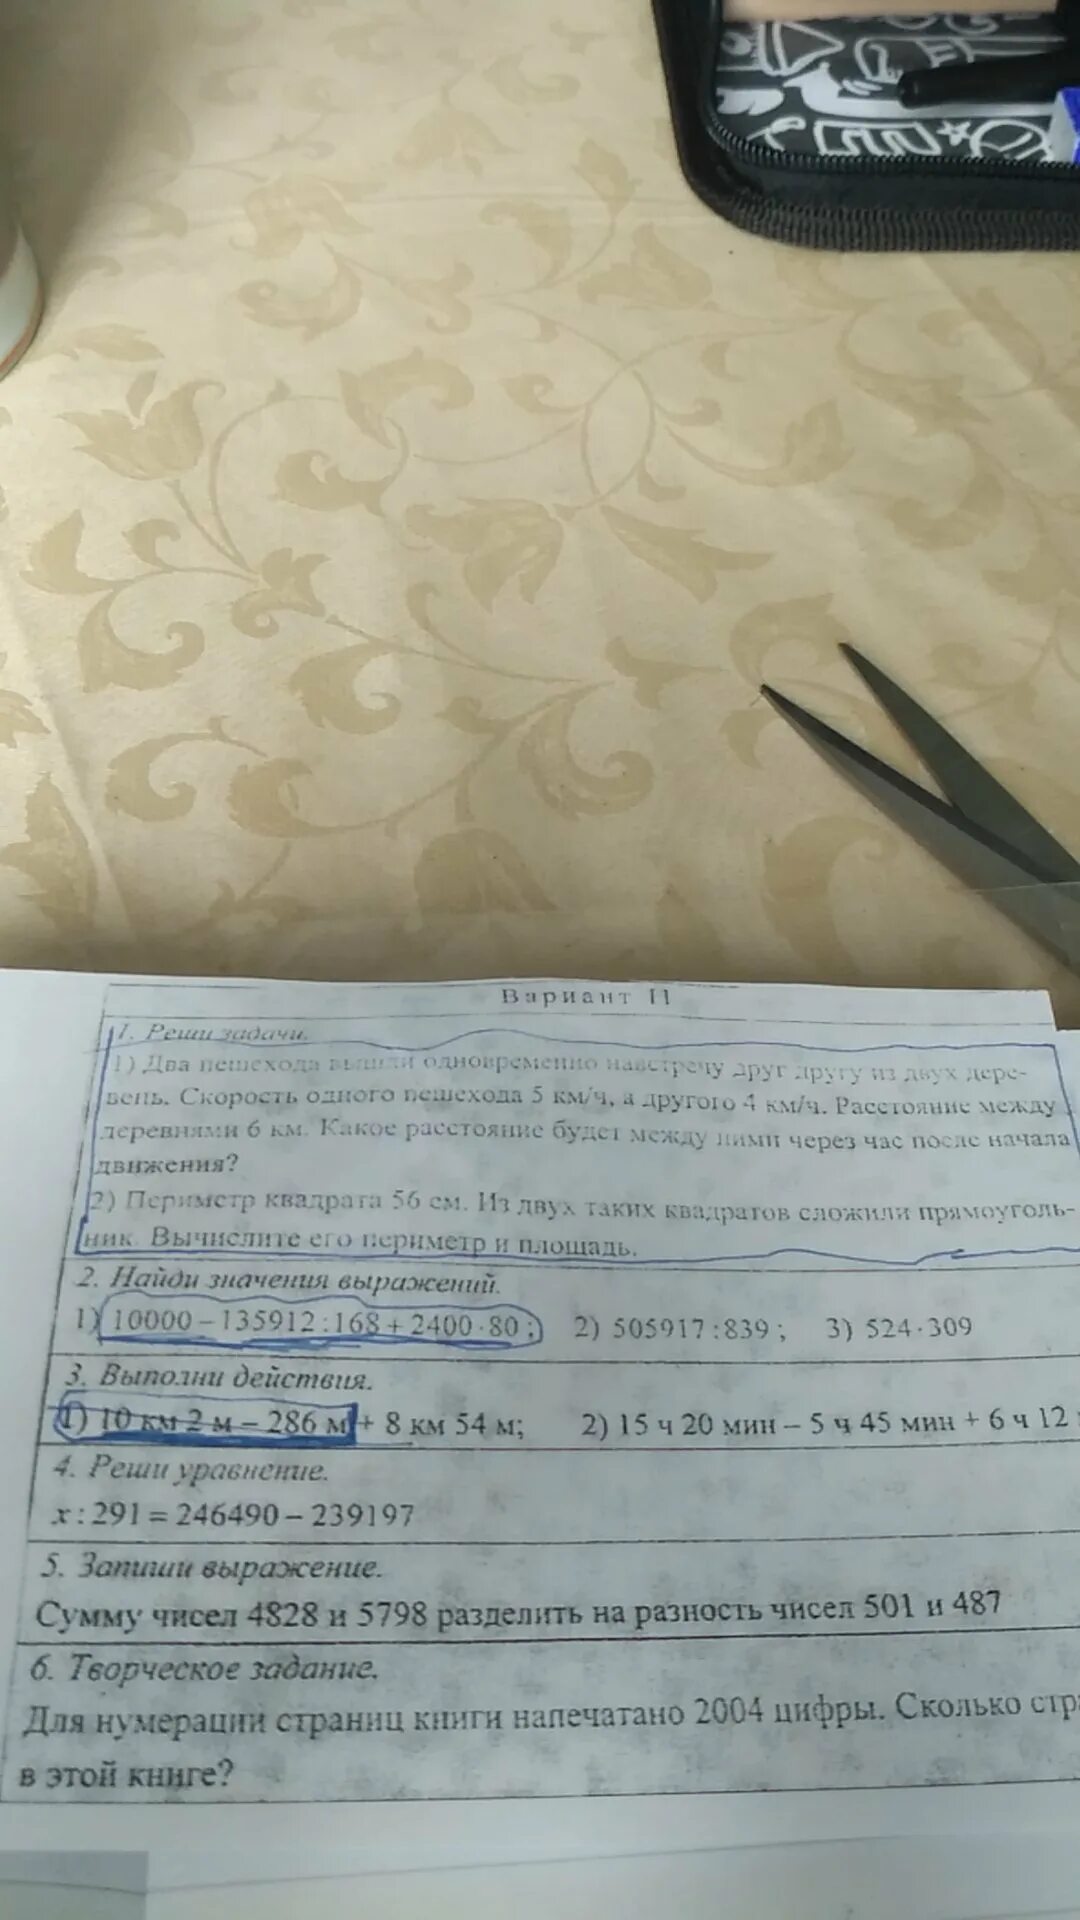 Вариант II
1. Реши задачи.
1) Два пешехода вышли одновременно навстречу друг другу из двух дере-
вень. Скорость одного пешехода 5 км/ч, а другого 4 км/ч. Расстояние между
деревнями 6 км. Какое расстояние будет между ними через час после начала
движения?
2) Периметр квадрата 56 см. Из двух таких квадратов сложили прямоуголь-
ник. Вычислите его периметр и площадь.
2. Найди значения выражений.
1) 10000 – 135912 : 168 + 2400 · 80 ; 2) 505917 : 839 ; 3) 524 · 309
3. Выполни действия.
1) 10 км 2 м – 286 м + 8 км 54 м; 2) 15 ч 20 мин – 5 ч 45 мин + 6 ч 12
4. Реши уравнение.
x : 291 = 246490 – 239197
5. Запиши выражение.
Сумму чисел 4828 и 5798 разделить на разность чисел 501 и 487
6. Творческое задание.
Для нумерации страниц книги напечатано 2004 цифры. Сколько стра
в этой книге?